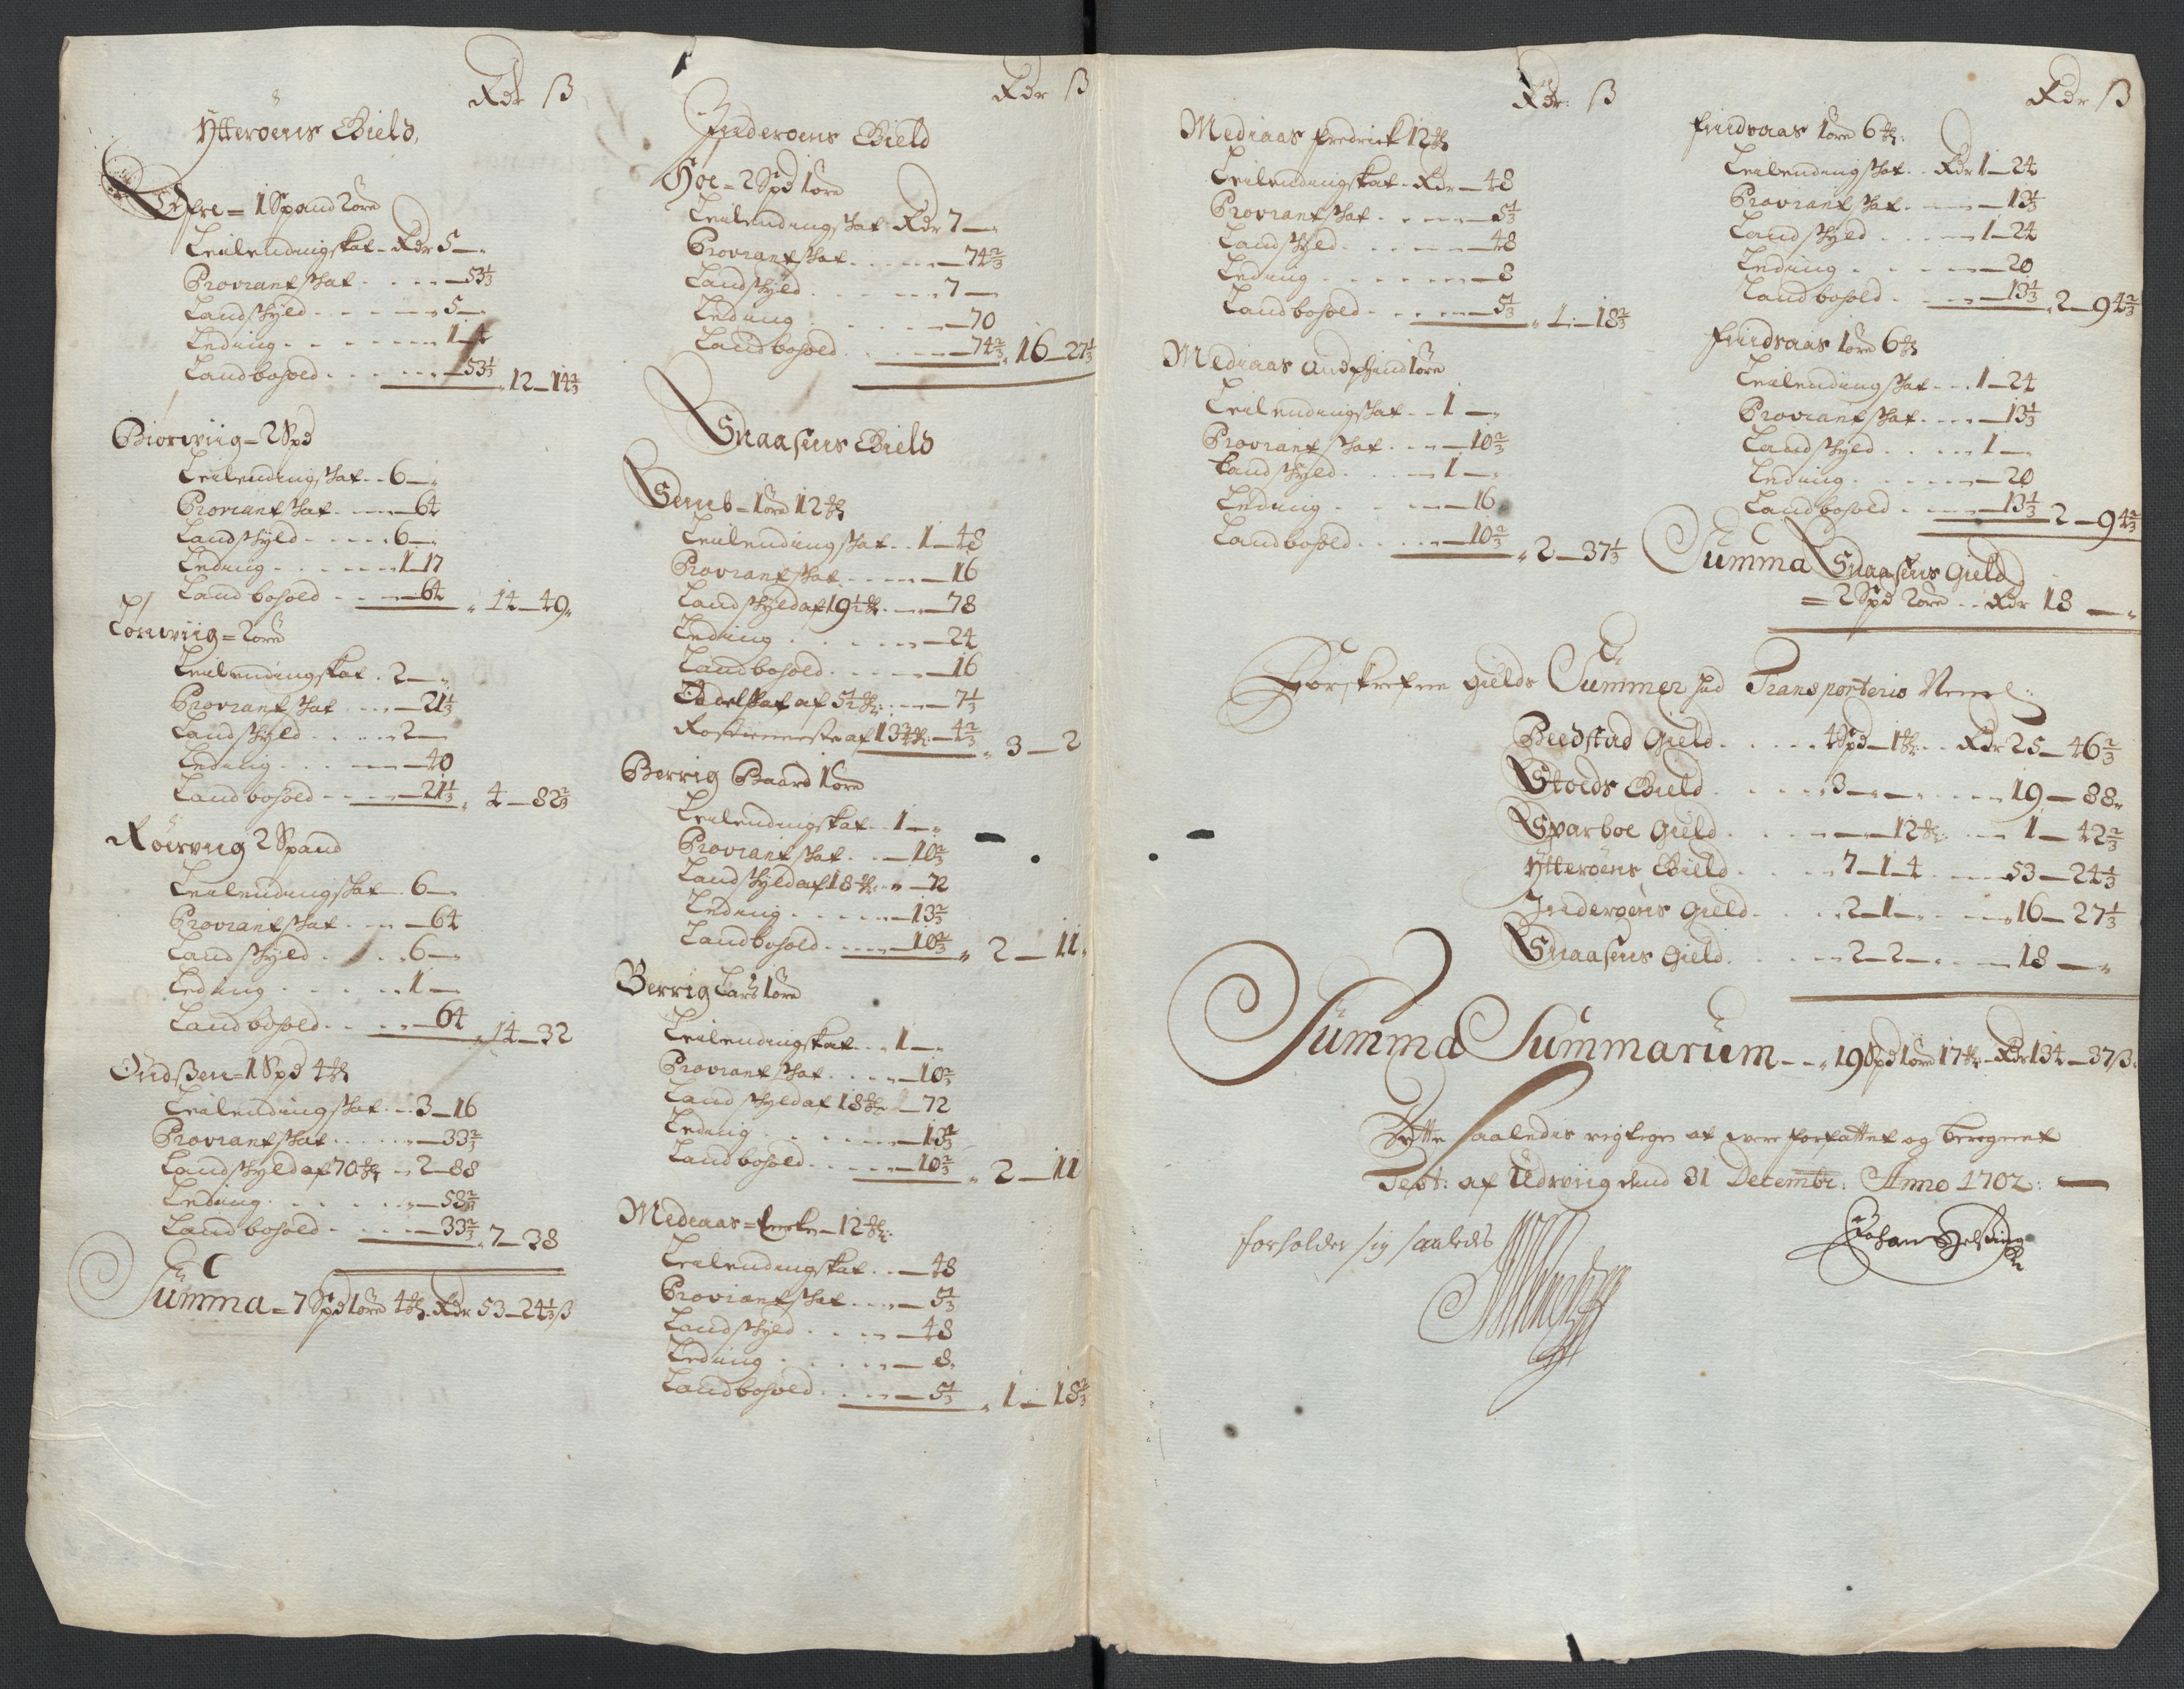 Rdr ß
Ytterøens Gield,
Efre = 1 Spand 2øre
Leilendingskat - Rdr 5 —
Proviantskat . . . . — 53⅓
Landskyld - - - - - 5 —
Leding - - - - - - 1 — 4
Landbohold . . . . . . — 53⅓ 12 — 14⅔
Biørwiig = 2 Spd
Leilendingskat . . 6 —
Proviantskat . — 64
Landskyld - - - - 6 —
Leding - - - - - 1 — 17
Landbohold - - - — 64 14 — 49
Lørwiig = 2øre
Leilendingskat . 2 —
Proviantskat . . — 21⅓
Landskyld . . . . 2 —
Leding . . . — 40
Landbohold - - - — 21⅓ 4 — 82⅔
Røirviig 2 Spand
Leilendingskat . 6 —
Proviantskat . — 64
Landskyld . . . . 6 —
Leding . . . . . 1 —
Landbohold . . . . — 64 14 — 32
Oudßen = 1 Spd 4 mk
Leilendingskat . . 3 — 16
Proviantskat . . . . — 33⅔
Landskyld af 70 mk - 2 — 88
Leding . . . . . — 58⅔
Landbohold - . . . — 33⅔ 7 — 38
Summa = 7 Spd 1øre 4 mk. Rdr 53 — 24⅓ ß
Rdr ß
Inderøens Gield
Hoe = 2 Spd 1øre
Leilendingskat Rdr 7 —
Proviantskat . . . . — 74⅔
Landskyld . . . . . 7 —
Leding . . . . — 70
Landbohold . . . . — 74⅔ 16 — 27⅓
Snaasens Gield
Semb = 1øre 12 mk
Leilendingskat . . 1 — 48
Proviantskat . . . . — 16
Landskyld af 19½ mk . — 78
Leding . . . . . — 24
Landbohold . . . . — 16
Odelskat af 5½ mk . . — 7⅓
Rostieneste af 13¾ mk — 4⅔ 3 — 2
Berrig Baard 1øre
Leilendingskat . . 1 —
Proviantskat . . — 10⅔
Landskyld af 18 mk . — 72
Leding . . . . . — 13⅔
Landbohold . . . . — 10⅔ 2 — 11
Berrig Lars 1øre
Leilendingskat . . . 1 —
Proviantskat . . . . — 10⅔
Landskyld af 18 mk — 72
Leding . . . . . — 13⅔
Landbohold . . . . — 10⅔ 2 — 11
Mediaas = — 12 mk
Leilendingskat . . — 48
Proviantskat . . . — 5⅓
Landskyld . . . — 48
Leding . . . . . — 8
Landbohold . . . — 5⅓ 1 — 18⅔
Rdr: ß
Mediaas fredrick 12 mk
Leilendingskat - Rdr — 48
Proviantskat . . . . — 5⅓
Landskyld . . . . — 48
Leding . . . . . — 8
Landbohold . . . . — 5⅓ 1 — 18⅔
Mediaas Andphind 1øre
Leilendingskat . . 1 —
Proviantskat . . . — 10⅔
Landskyld . . . — 1 —
Leding . . . — 16
Landbohold . . . . — 10⅔ 2 — 37⅓
Rdr ß
findsaas 1øre 6 mk:
Leilendingskat . . Rdr 1 — 24
Proviantskat . . . . — 13⅓
Landskyld . . . . 1 — 24
Leding . . . . — 20
Landbohold . . . . — 13⅓ 2 — 94⅔
findsaas 1øre 6 mk
Leilendingskat . . . 1 — 24
Proviantskat . . . — 13⅓
Landskyld . . . . 1 —
Leding . . . . . — 20
Landbohold . . . . — 13⅓ 2 — 94⅔
Summa Snaasens Gield
= 2 Spd 2øre . . Rdr 18 —
Forskrefne Gields Summer Transporteris Neml:
Bedstad Gield . . . . . 4 Spd — 1 mk . . Rdr 25 — 46⅔
Stoeds Gield . . . . . 3 — — . . . . 19 — 88
Sparboe Gield . . . . — — 12 mk . . — 1 — 42⅔
Ytterøens Gield . . . . 7 — 1 — 4 . . . 53 — 24⅓
Inderøens Gield . . . . 2 — 1 — . . . 16 — 27⅓
Snaasens Gield . . . . 2 — 2 — . . . 18 —
Summa Summarum - - 19 Spd 1øre 17 mk - Rdr 134 — 37 ß:
Dette saaledis rigtigen at vere forfattet og beregnet
Test: af Udviig dend 31 Decembr: Anno 1702: —
forholder sig saaledes
Johan Helsing